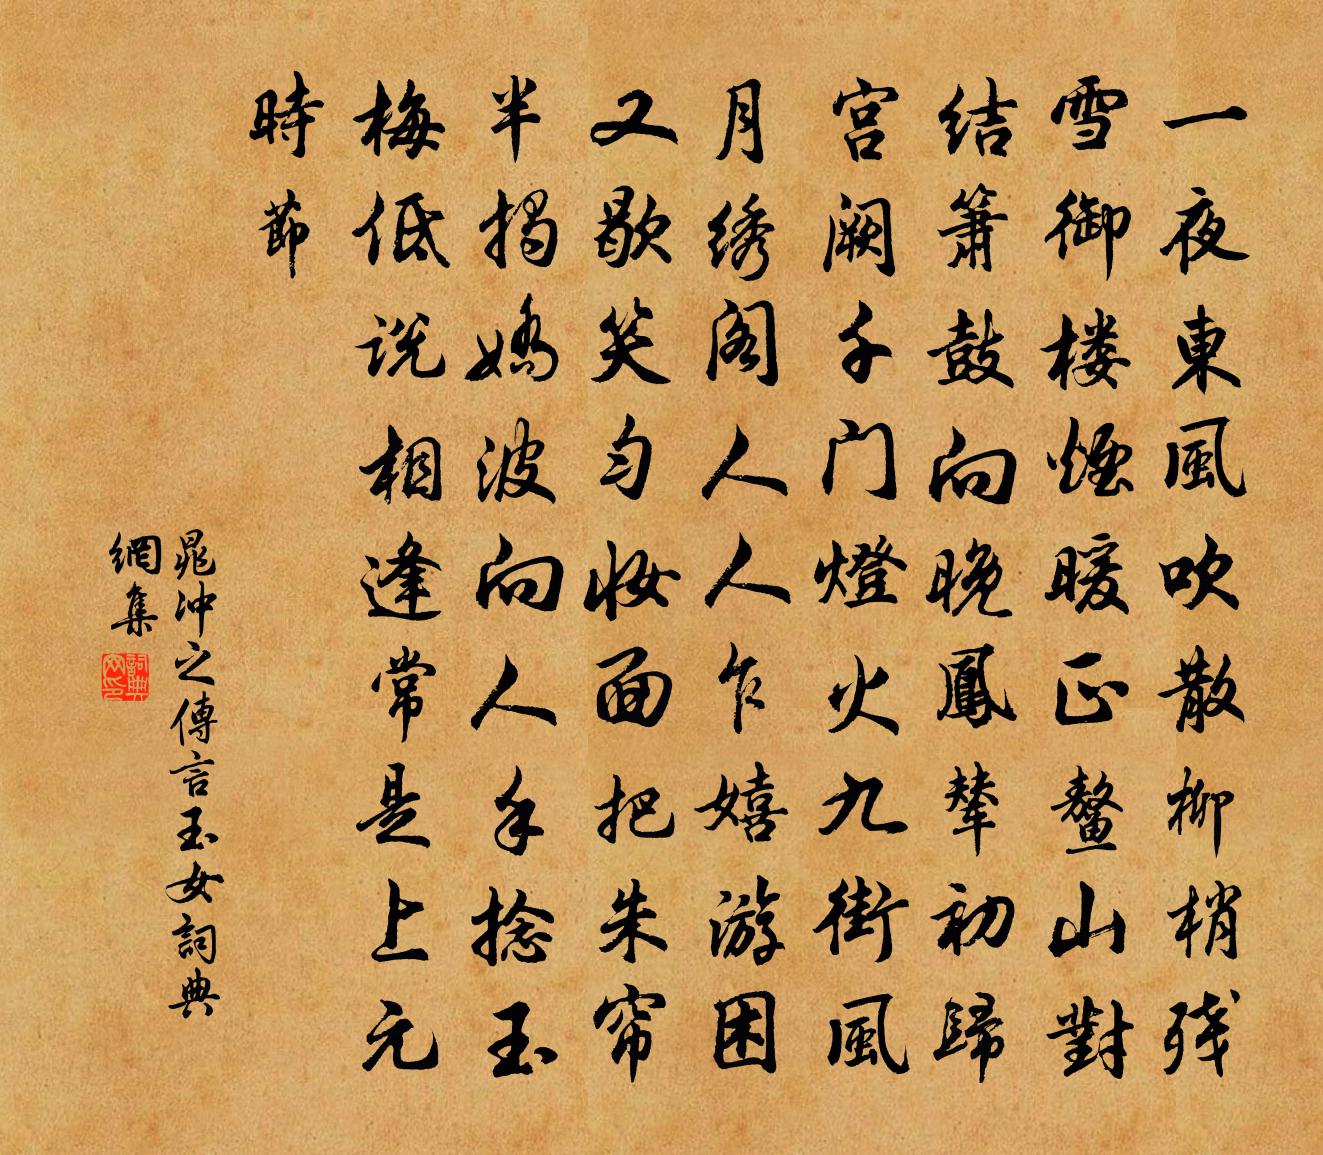 一夜東風吹散柳梢残
雪御楼煙暖正鰲山對
结簫鼓向晚鳳輦初歸
宫阙千门燈火九街風
月绣阁人人乍嬉游困
又歇笑匀妆面把朱帘
半揭嬌波向人手捻玉
梅低说相逢常是上元
時節
晁冲之傳言玉女詞典
網集
詞典
网印